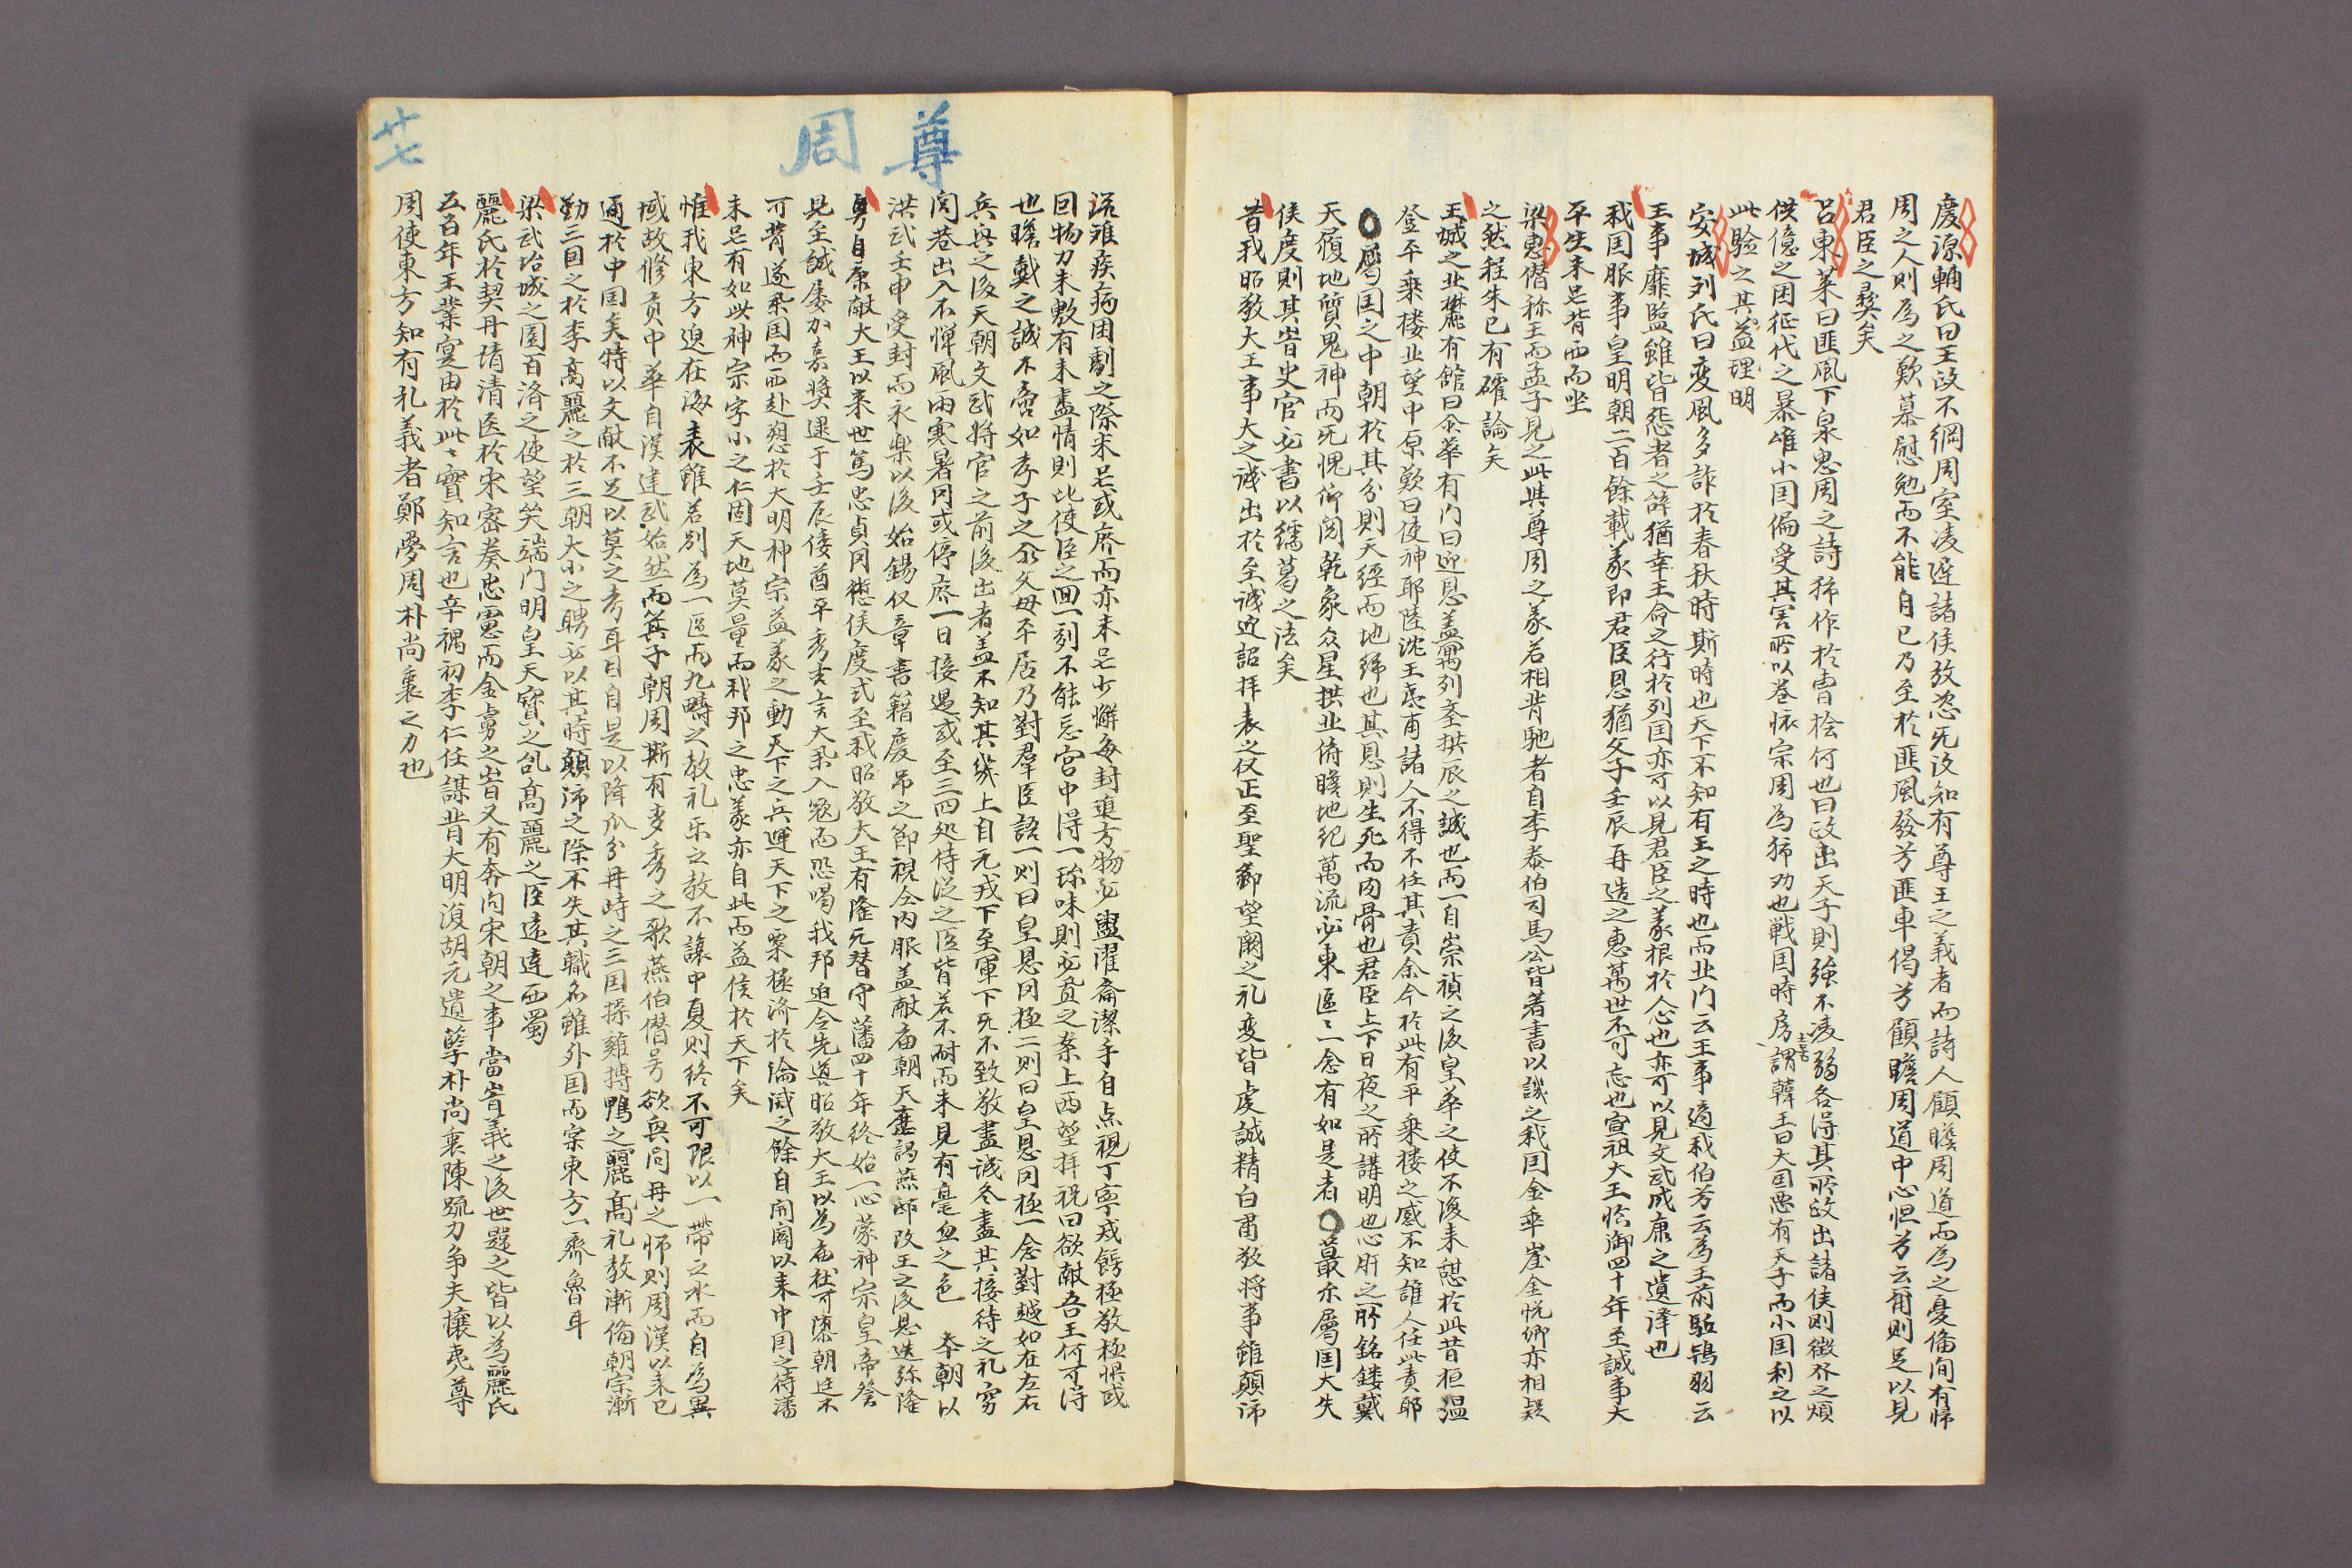 慶源輔氏曰王政不綱周室凌遲諸侯放恣旡復知有尊王之義者而詩人顧瞻周道而為之憂傷有㱕
周之人則為之歎慕慰勉而不能自已乃至於匪風發兮匪車偈兮顧瞻周道中心怛兮云甫則足以見
君臣之彛矣
呂東萊曰匪風下泉思周之詩㹦作於曺桧何也曰政出天子則強不凌弱各得其所政出諸侯則徵發之煩
供億之困征伐之暴唯小囯偏受其害所以卷懐宗周為㹦切也戦囯時房喜謂韓王曰大囯惡有天子而小囯利之以
此驗之其益理明
安城列氏曰変風多詐於春秋時斯時也天下不知有王之時也而北门云王事適我伯兮云為王前駈鴇羽云
王事靡監雖皆怨者之辞猶幸王命之行於列囯亦可以見君臣之義根於人心也亦可以見文武成康之遺澤也
我囯服事皇明朝二百餘載義即君臣恩猶父子壬辰再造之惠萬世不可忘也宣祖大王恰御四十年至誠事大
平生未㞐背西而坐
梁惠僣称王而孟子見之此與尊周之義若相背馳者自李泰伯司馬公皆著書以譏之我囯金乖崖金悅卿亦相疑
之然程朱已有礭論矣
王城之北麓有舘曰余華有门曰迎恩盖寓列圣拱辰之誠也而一自崇禎之後皇華之使不復来憇於此昔桓温
登平乗楼北望中原歎曰使神耶陸沈王夷甫諸人不得不任其責余今於此有平乗楼之感不知誰人任此責耶
屬囯之中朝於其分則天經而地緯也其恩則生死而肉骨也君臣上下日夜之所講明也心肝之所銘鏤戴
天履地質鬼神而旡愧仰閲乾象众星拱北俯瞻地紀萬流必東區々一念有如是者最尓屬囯大失
侯度則其旹史官必書以繻葛之法矣
昔我昭敬大王事大之誠出於至誠迎詔拝表之仪正至聖節望闕之礼変皆虔誠精白肅敬将事雖顛沛
流離疾病困劇之除未㞐或废而亦未㞐少懈每封進方物必盥濯斎潔手自点視丁寧戒餝極敬極惧或
囘物力未敷有未盡情則比使臣之囬一列不能忘宮中得一珎味則必貢之案上西望拝祝曰欲献吾王何可得
也瞻戴之誠不啻如孝子之於父母平居乃對羣臣語一則曰皇恩罔極二則曰皇恩罔極一念對越如在左右
兵興之後天朝文武将官之前後出者盖不知其幾上自元戎下至軍下旡不致敬盡诚冬盡其接待之礼穷
閭巷出入不惮風雨寒暑囘或停废一日接遇或至三四処侍從之臣皆若不耐而未見有毫怠之色　本朝以
洪武壬申受封而永樂以後始錫仅章書籍慶吊之節視仝内服盖献庙朝天應謁燕邸改王之後恩迭弥隆
粤自康献大王以来世篤忠貞罔愆侯度式至我昭敬大王有隆旡替守藩四十年終始一心蒙神宗皇帝詧
見至誠屡加嘉奬逮于壬辰倭酋平秀吉言大衆入寇而恐喝我邦迫令先道昭敬大王以為庙社可隳朝廷不
可背遂棄囯而西赴愬於大明神宗益義之動天下之兵運天下之粟極濟於淪滅之餘自開闢以来中囯之待藩
未㞐有如此神宗字小之仁固天地莫量而我邦之忠義亦自此而益侯於天下矣
惟我東方逈在海表雖若別為一區而九疇之教礼乐之教不讓中夏則終不可限以一帶之水而自為異
域故修貢中華自漢建武始然而箕子朝周斯有麦秀之歌燕伯僣号欲與同舟之师則周漢以来已
通於中囯矣特以文献不足以莫之考耳自是以降瓜分再峙之三囯操雞摶鴨之麗高礼教漸俻朝宗漸
勤三囯之於李高麗之於三朝大小之聘必以其時顛沛之際不失其職名雖外囯而宗東方一齊魯耳
梁武㘯城之圍百济之使望笑端门明皇天寳之乱高麗之臣遠達西蜀
麗氏於契丹猜清医於宋密奏忠憲而金虜之旹又有奔问宋朝之事當旹義之後世韙之皆以為麗氏
五百年王業寔由於此々實知言也辛禑初李仁任謀背大明復胡元遺孽朴尚衷陳䟽力争夫攘夷尊
周使東方知有礼義者鄭夢周朴尚衷之力也
尊周
廿七